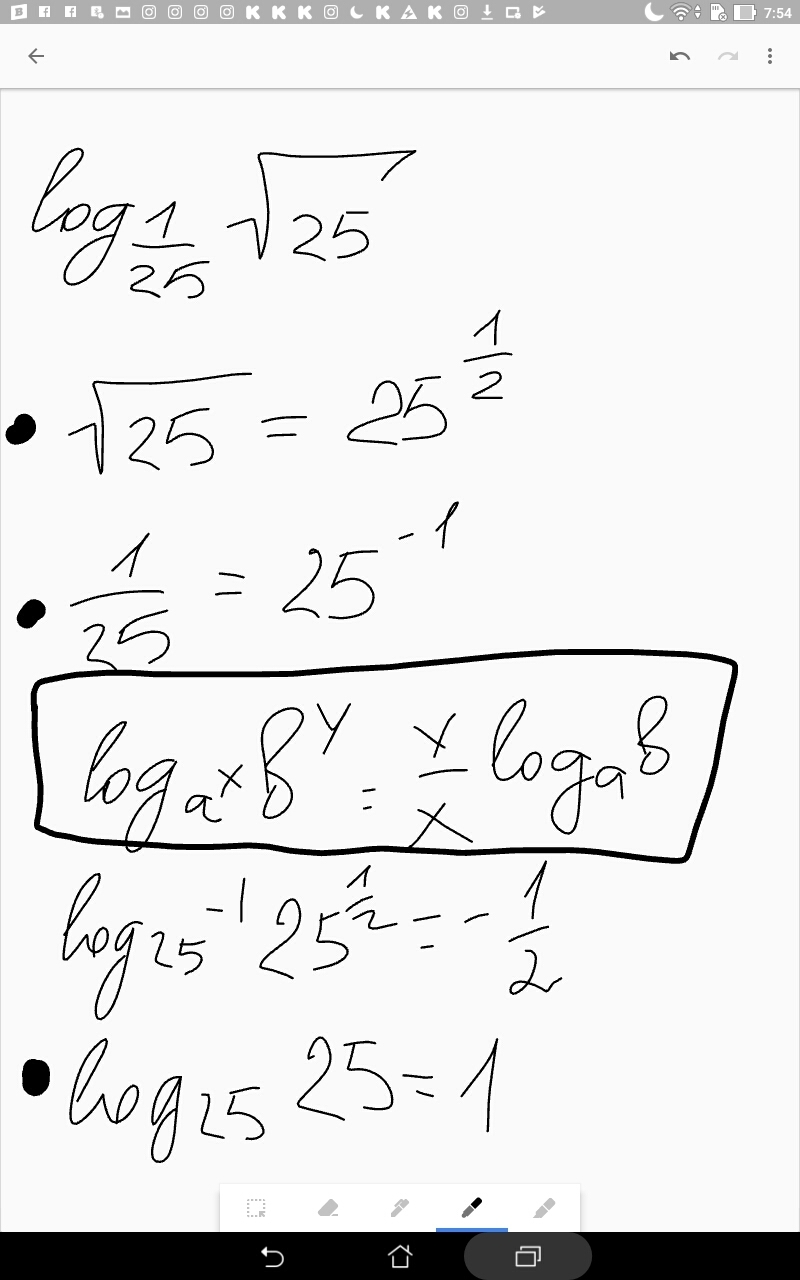 7:54
log_{1/25} √25
√25 = 25^{1/2}
1/25 = 25^{-1}
log_{a^x} b^y = y/x log_a b
log_{25^{-1}} 25^{1/2} = -1/2
log_{25} 25 = 1